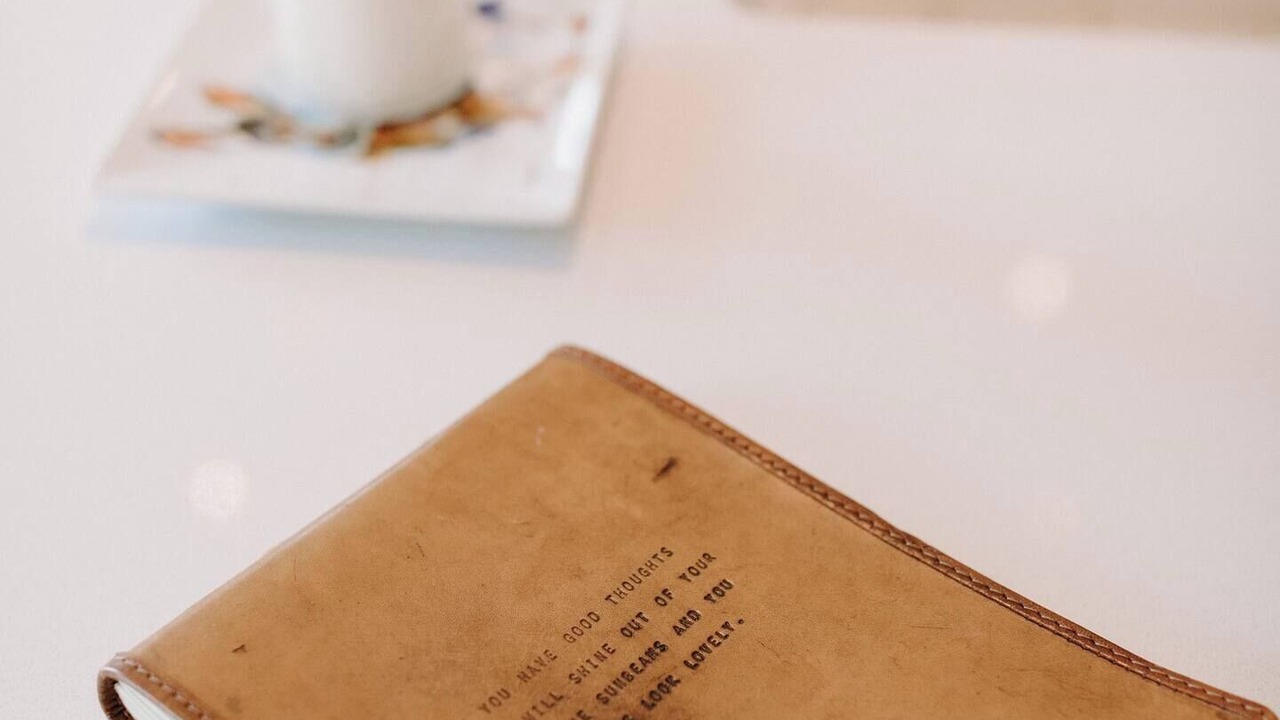 YOU HAVE GOOD THOUGHTS
WILL SHINE OUT OF YOUR
SUNBEAMS AND YOU
LOOK LOVELY.